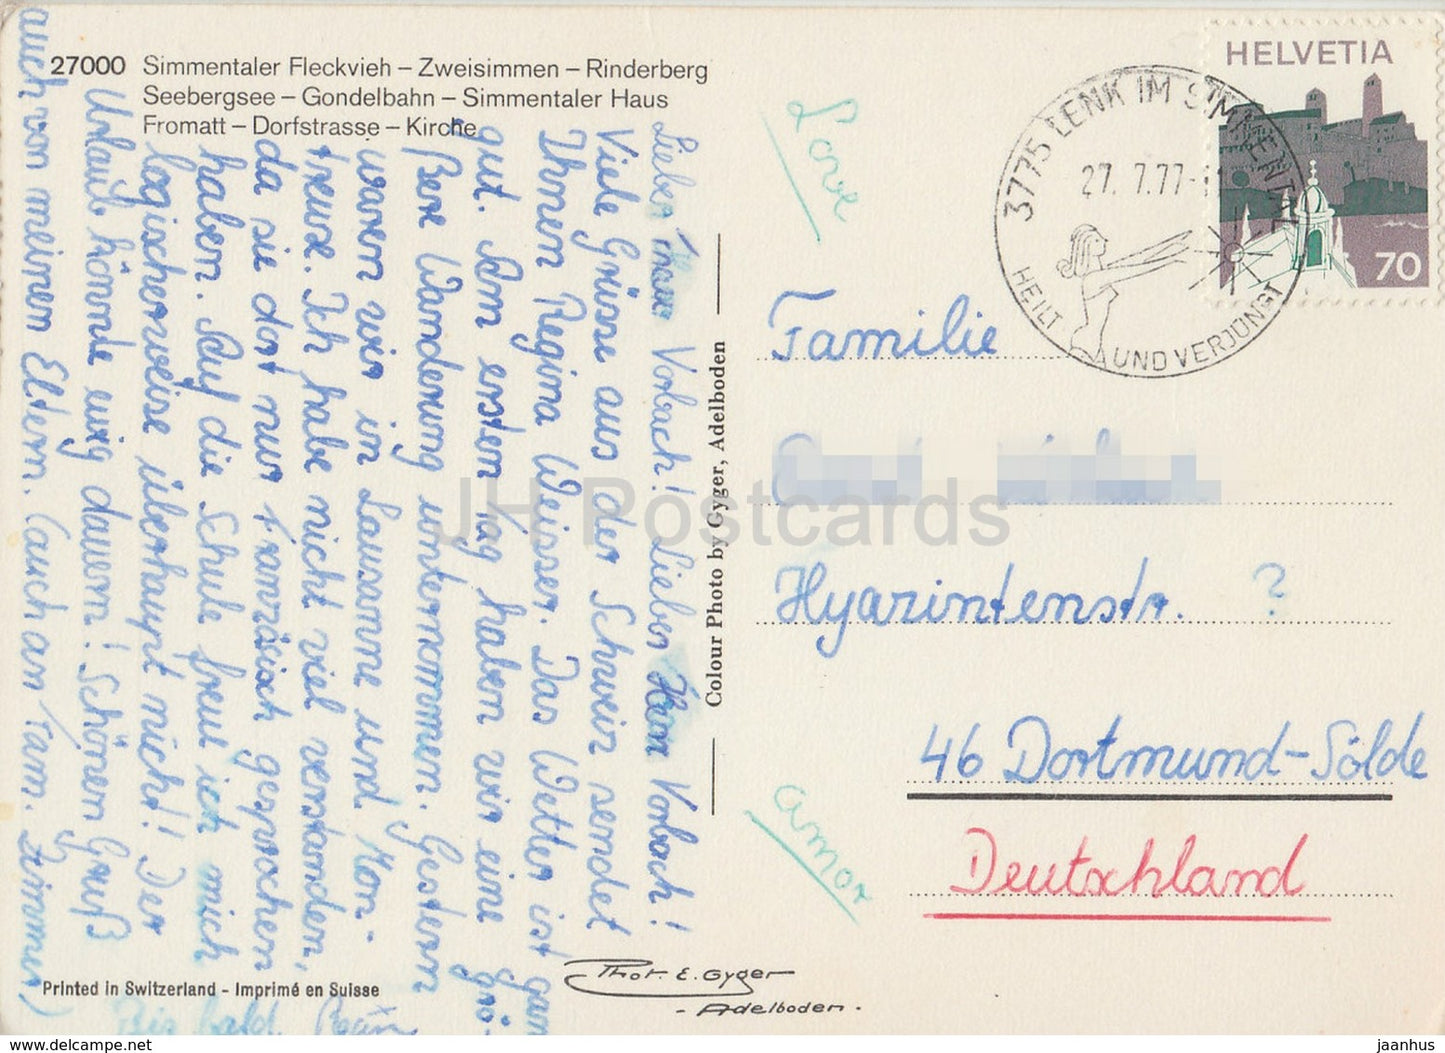 27000 Simmentaler Fleckvieh – Zweisimmen – Rinderberg
Seebergsee – Gondelbahn – Simmentaler Haus
Fromatt – Dorfstrasse – Kirche
Liebe Frau Vorbach! Lieber Herr Vorbach!
Viele Grüsse aus der Schweiz sendet
Ihnen Regina Weisser. Das Wetter ist ganz
gut. Am ersten Tag haben wir eine grö-
ßere Wanderung unternommen. Gestern
waren wir in Lausanne und Mon-
treux. Ich habe nicht viel verstanden,
da sie dort nur französisch gesprochen
haben. Auf die Schule freut ich mich
logischerweise überhaupt nicht! Der
Urlaub könnte ewig dauern! Schönen Gruß
auch von meinen Eltern. (auch an Fam. Zimmer)
Bis bald
Colour Photo by Gyger, Adelboden
Printed in Switzerland - Imprimé en Suisse
Phot. E. Gyger
- Adelboden -
Love
amor
HELVETIA
70
3775 LENK IM SIMMENTAL
27. 7. 77
HEILT UND VERJÜNGT
Familie
Hyazintenstr. ?
46 Dortmund-Sölde
Deutschland
JH Postcards
www.delcampe.net
jaanhus